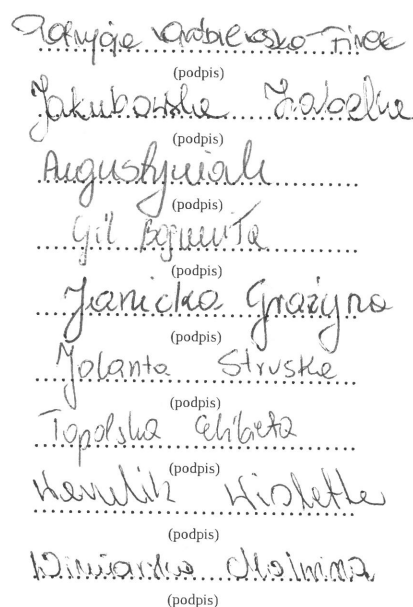 (podpis)
Jakubowska Izabela
(podpis)
Augustyniak
(podpis)
Gil Bogumiła
(podpis)
Janicka Grażyna
(podpis)
Jolanta Struska
(podpis)
Topolska Elżbieta
(podpis)
Wioletta
(podpis)
Winiarska
(podpis)